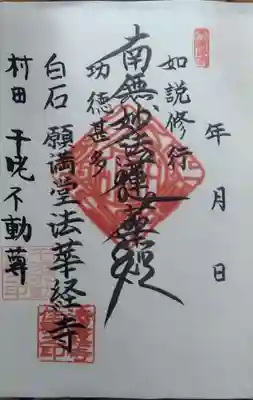 年 月 日
如説修行
南無妙法蓮華経
功徳甚多
白石 願満堂法華経寺
村田 干咾不動尊